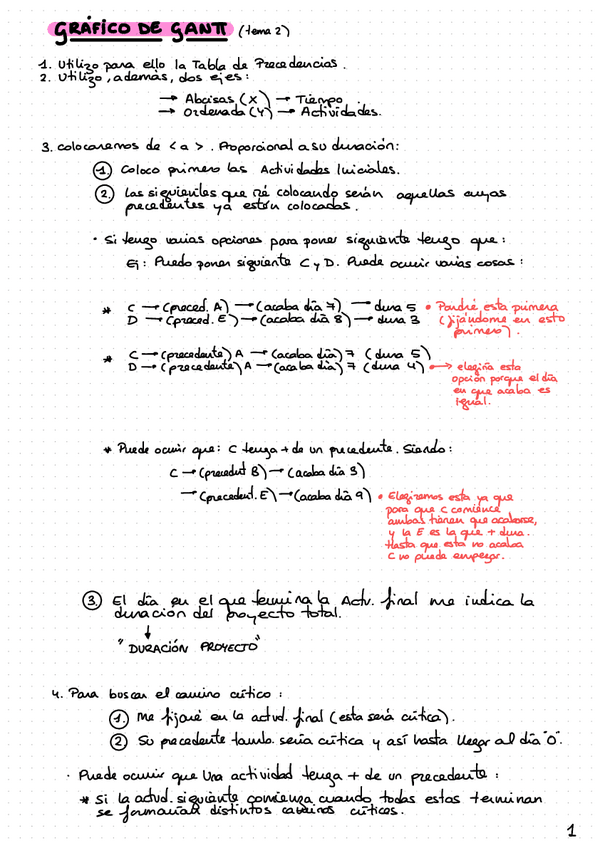 GRÁFICO DE GANTT (tema 2)
1. Utilizo para ello la Tabla de Precedencias.
2. Utilizo, además, dos ejes:
→ Abcisas (X) → Tiempo.
→ Ordenada (Y) → Actividades.
3. colocaremos de <a>. Proporcional a su duración:
1. Coloco primero las Actividades Iniciales.
2. Las siguientes que iré colocando serán aquellas cuyas
precedentes ya estén colocadas.
· Si tengo varias opciones para poner siguiente tengo que:
Ej: Puedo poner siguiente C y D. Puede ocurrir varias cosas:
* C → (preced. A) → (acaba día 7) → dura 5 • Pondré esta primera
D → (preced. E) → (acaba día 8) → dura 3 (fijándome en esto
primero).
* C → (precedente) A → (acaba día) 7 (dura 5)
D → (precedente) A → (acaba día) 7 (dura 4) •→ elegiría esta
opción porque el día
en que acaba es
igual.
* Puede ocurrir que: C tenga + de un precedente. Siendo:
C → (precedent B) → (acaba día 3)
→ (precedent. E) → (acaba día 9) • Elegiremos esta ya que
para que C comience
ambas tienen que acabarse,
y la E es la que + dura.
Hasta que esta no acaba
C no puede empezar.
3. El día en el que termina la Activ. final me indica la
duración del proyecto total.
↓
"DURACIÓN PROYECTO"
4. Para buscar el camino crítico:
1. Me fijaré en la activd. final (esta será crítica).
2. Su precedente tamb. sería crítica y así hasta llegar al día "0".
· Puede ocurrir que Una actividad tenga + de un precedente:
* Si la activd. siguiente comienza cuando todas estas terminan
se formarían distintos caminos críticos.
1